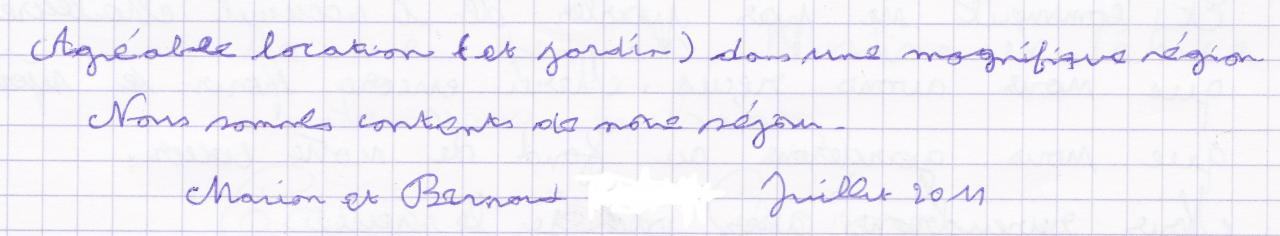 Agréable location (et jardin) dans une magnifique région
Nous sommes contents de notre séjour.
Marion et Bernard Juillet 2011